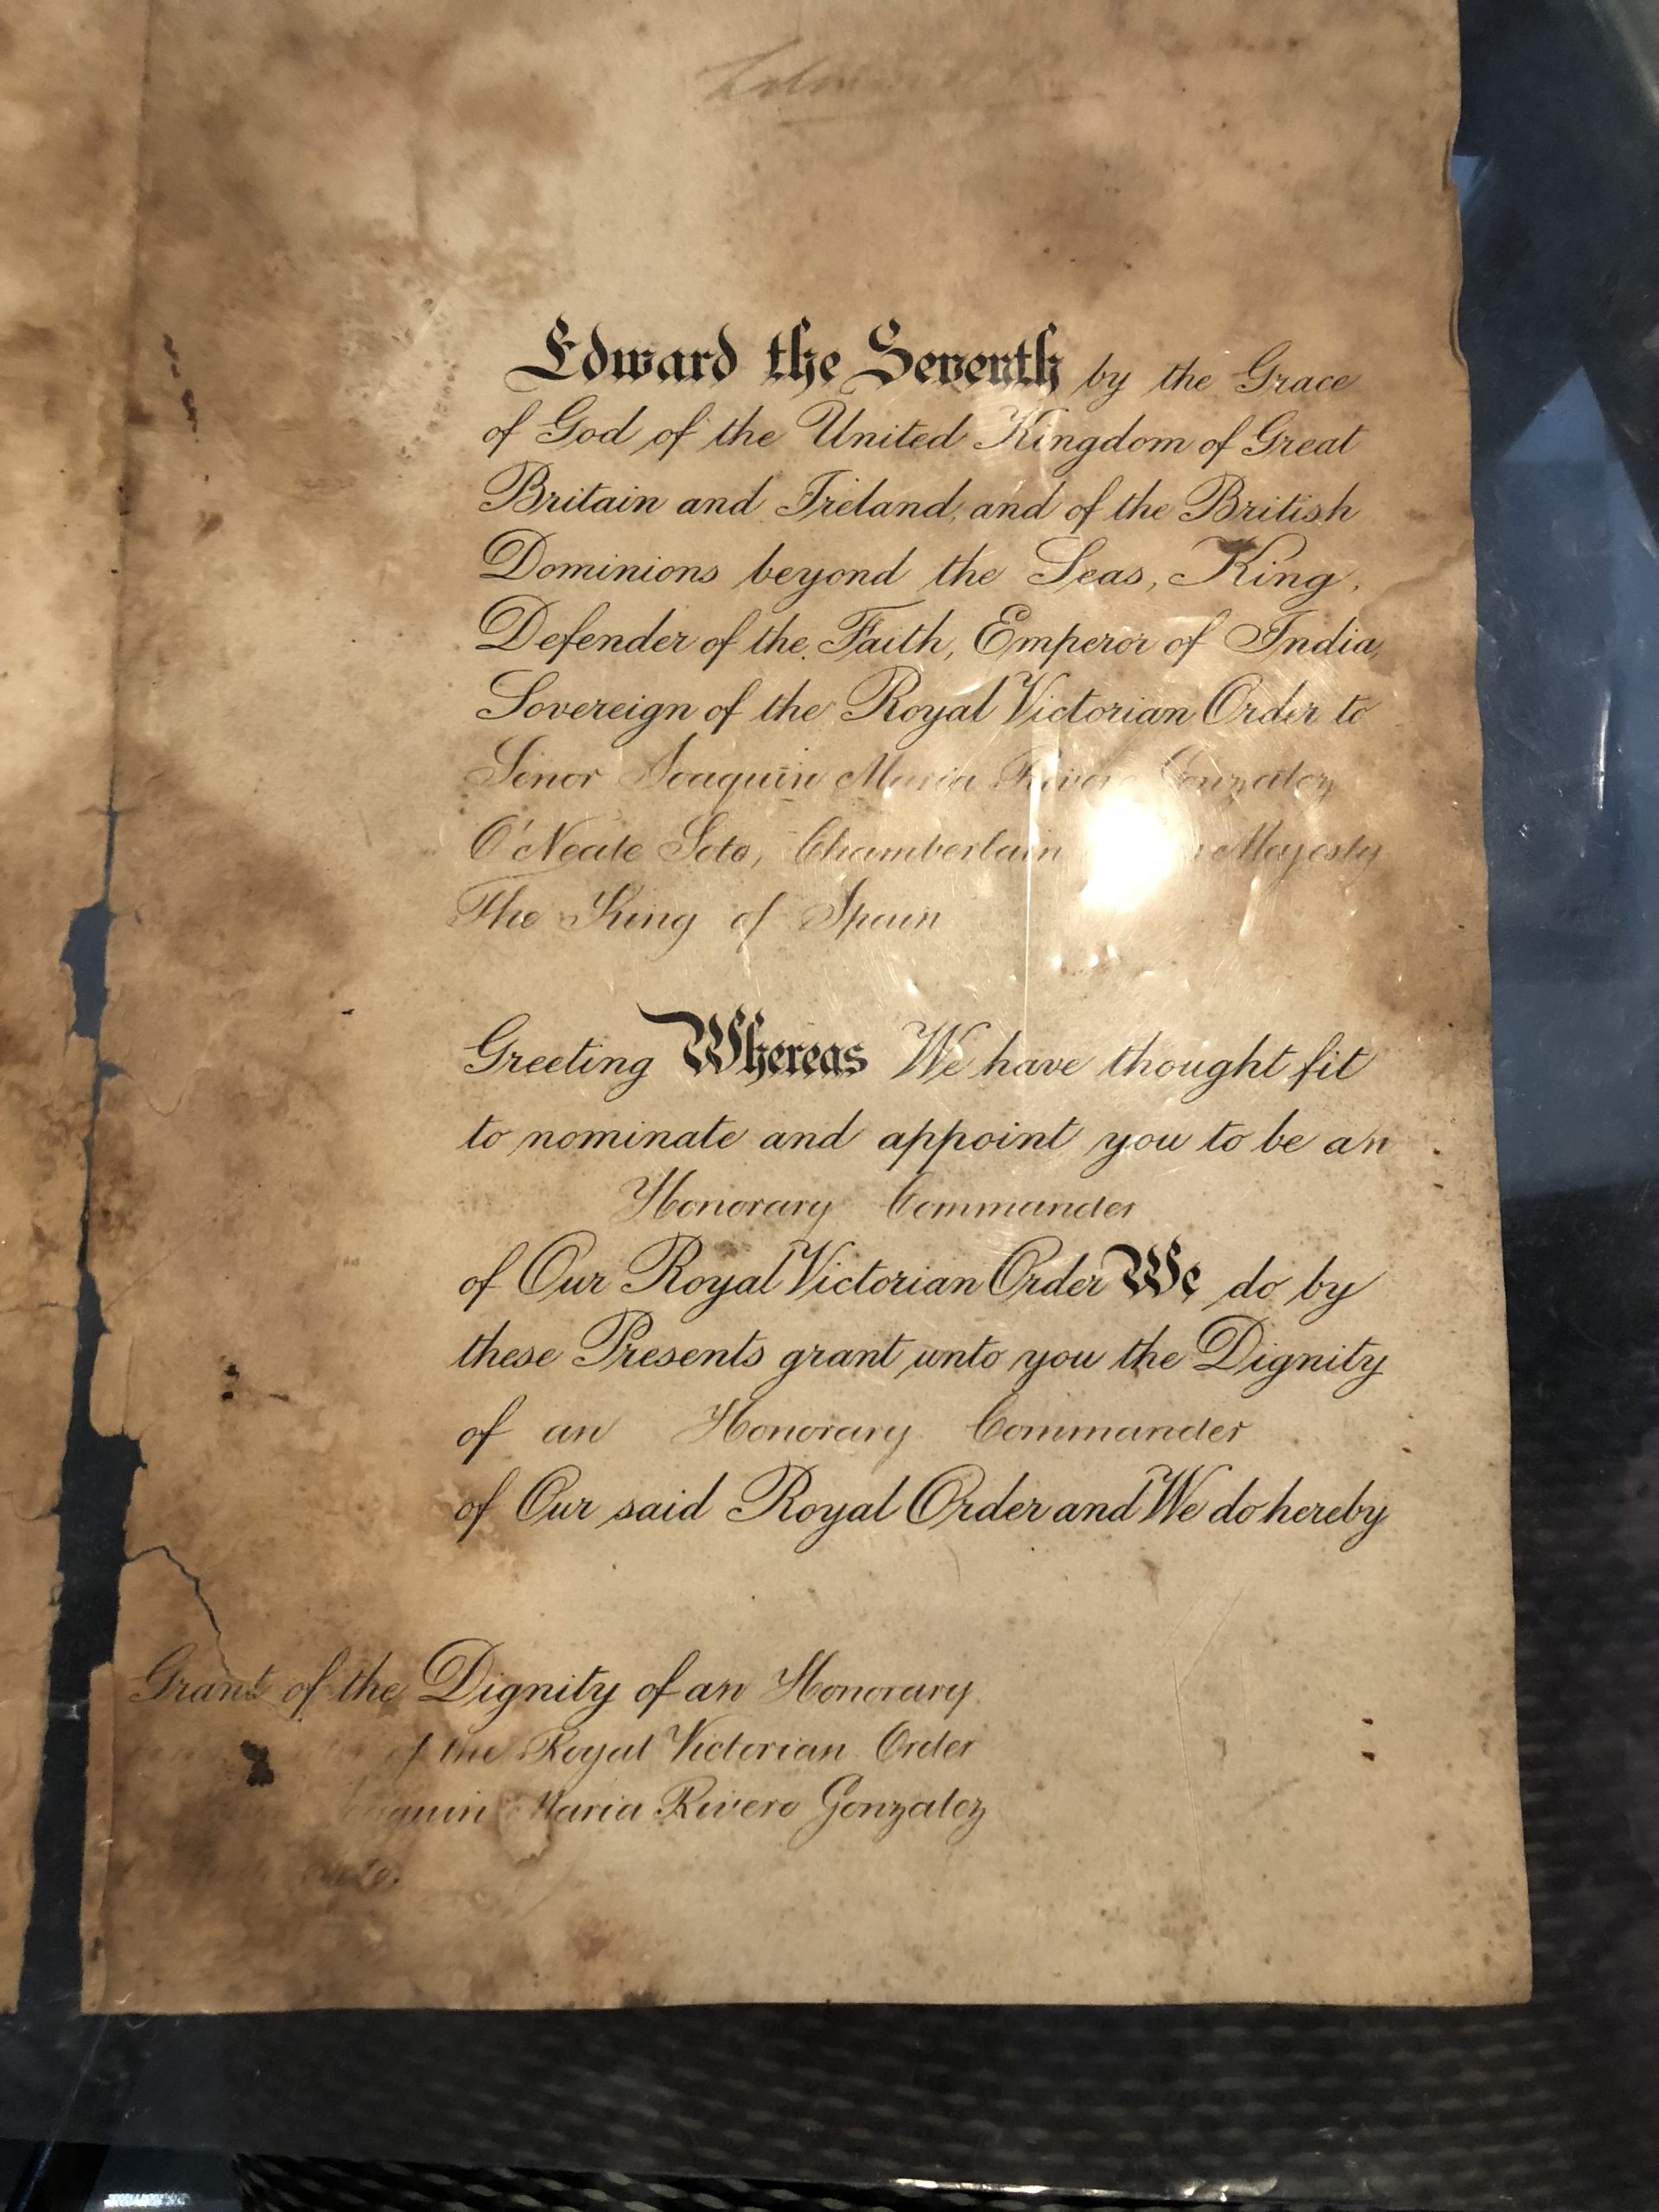 Edward the Seventh by the Grace
of God of the United Kingdom of Great
Britain and Ireland, and of the British
Dominions beyond the Seas, King,
Defender of the Faith, Emperor of India,
Sovereign of the Royal Victorian Order to
Senor Joaquin Maria Rivero Gonzalez
O'Neale Soto, Chamberlain Majesty
The King of Spain
Greeting Whereas We have thought fit
to nominate and appoint you to be an
Honorary Commander
of Our Royal Victorian Order We do by
these Presents grant unto you the Dignity
of an Honorary Commander
of Our said Royal Order and We do hereby
Grant of the Dignity of an Honorary
of the Royal Victorian Order
Maria Rivero Gonzalez